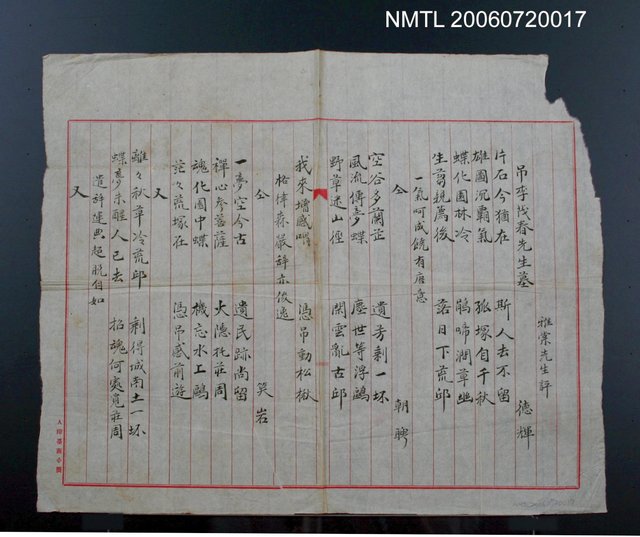 NMTL 20060720017
吊李茂春先生墓
雅棠先生評 德輝
片石今猶在 斯人去不留
雄圖沉霸氣 孤塚自千秋
蝶化園林冷 鵑啼澗草幽
生芻親薦後 落日下荒邱
一氣呵成饒有唐意
仝 朝騁
空谷多蘭芷 遺芳剩一坏
風流傳夢蝶 塵世等浮鷗
野草迷山徑 閑雲亂古邱
我來增感喟 憑吊動松楸
格律森嚴辞亦俊逸
仝 笑岩
一夢空今古 遺民跡尚留
禪心參菩薩 大隱託莊周
魂化園中蝶 機忘水上鷗
茫々荒塚在 憑吊感前遊
又
離々秋草冷荒邱 剩得城南土一坏
蝶夢未醒人已去 招魂何處覓莊周
遣辞運典超脫自如
又